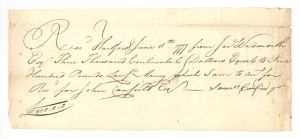 Rec'd Hartford June 11th 1777 from Jer Wadsworth
Esq Three Thousand Continental Dollars Equal to Nine
Hundred Pounds Lawf Money which I am to acc for
for John Canfield Esq
£900.0.0